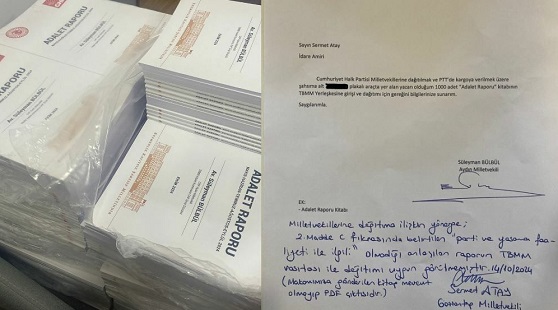 ADALET RAPORU
Av. Süleyman BÜLBÜL
RAPORU
Av. Süleyman BÜLBÜL
EKİM 2024
Av. Süleyman BÜLBÜL
ADALET RAPORU
Sayın Sermet Atay
İdare Amiri
Cumhuriyet Halk Partisi Milletvekillerine dağıtılmak ve PTT'de kargoya verilmek üzere
şahsıma ait plakalı araçta yer alan yazarı olduğum 1000 adet "Adalet Raporu" kitabının
TBMM Yerleşkesine girişi ve dağıtımı için gereğini bilgilerinize sunarım.
Saygılarımla.
Süleyman BÜLBÜL
Aydın Milletvekili
EK:
- Adalet Raporu Kitabı
Milletvekillerine dağıtıma ilişkin yönerge;
2. Madde C fıkrasında belirtilen "parti ve yasama faa-
liyeti ile ilgili" olmadığı anlaşılan raporun TBMM
vasıtası ile dağıtımı uygun görülmemiştir. 14/10/2024
(Makamımıza gönderilen kitap mevcut
olmayıp PDF çıktısıdır.)
Sermet ATAY
Gaziantep Milletvekili